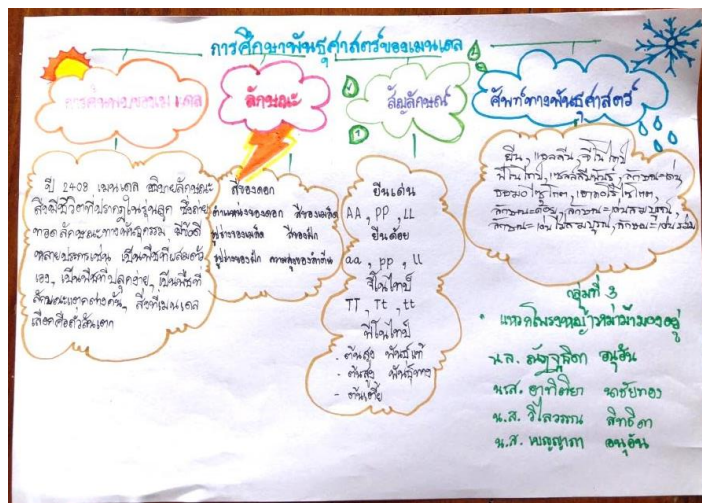 การศึกษาพันธุศาสตร์ของเมนเดล
การค้นพบของเมนเดล
ลักษณะ
สัญลักษณ์
ศัพท์ทางพันธุศาสตร์
ปี 2408 เมนเดล อธิบายลักษณะ
สิ่งมีชีวิตที่ปรากฏในรุ่นลูก ซึ่งถ่าย
ทอดลักษณะทางพันธุกรรม มีข้อดี
หลายประการเช่น เป็นพืชที่ผสมตัว
เอง, เป็นพืชที่ปลูกง่าย, เป็นพืชที่
ลักษณะแตกต่างกัน, สิ่งที่เมนเดล
เลือกคือถั่วลันเตา
สีของดอก
ตำแหน่งของดอก สีของเมล็ด
รูปร่างของเมล็ด สีของฝัก
รูปร่างของฝัก ความสูงของลำต้น
ยีนเด่น
AA, PP, LL
ยีนด้อย
aa, pp, ll
จีโนไทป์
TT, Tt, tt
ฟีโนไทป์
- ต้นสูง พันธุ์แท้
- ต้นสูง พันธุ์ทาง
- ต้นเตี้ย
ยีน, แอลลีล, จีโนไทป์
ฟีโนไทป์, เซลล์สืบพันธุ์, ลักษณะเด่น,
ฮอมอไซโกต, เฮเทอโรไซโกต,
ลักษณะด้อย, ลักษณะเด่นสมบูรณ์,
ลักษณะเด่นไม่สมบูรณ์, ลักษณะเด่นร่วม
กลุ่มที่ 3
น.ส. อาทิติยา
น.ส. วิไลวรรณ สิทธิดา
น.ส. เบญญาภา อนุอัน